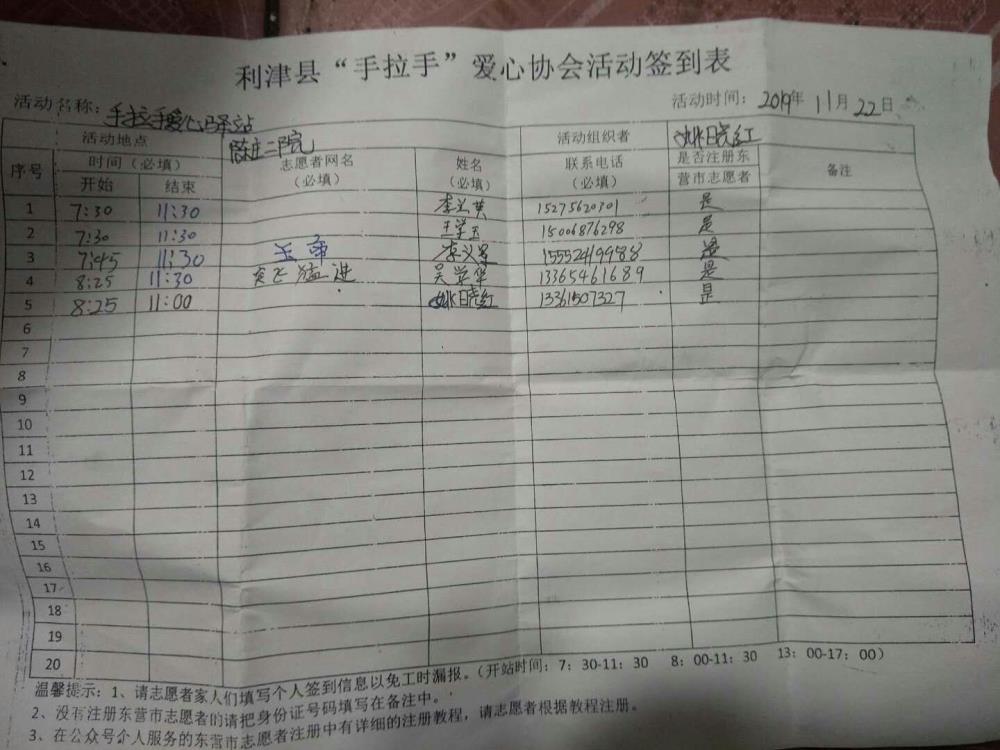 利津县“手拉手”爱心协会活动签到表
活动名称：手拉手爱心驿站 活动时间：2019年11月22日
活动地点 陈庄二院 活动组织者 姚晓红
序号 时间（必填） 志愿者网名（必填） 姓名（必填） 联系电话（必填） 是否注册东营市志愿者 备注
开始 结束
1 7:30 11:30 15275620301 是
2 7:30 11:30 王学玉 15006876298 是
3 7:45 11:30 李义军 15552419958 是
4 8:25 11:30 突飞猛进 吴学华 13365461689 是
5 8:25 11:00 姚晓红 13361507327 是
6
7
8
9
10
11
12
13
14
15
16
17
18
19
20
温馨提示：1、请志愿者家人们填写个人签到信息以免工时漏报。（开站时间：7：30-11：30 8：00-11：30 13：00-17：00）
2、没有注册东营市志愿者的请把身份证号码填写在备注中。
3、在公众号个人服务的东营市志愿者注册中有详细的注册教程，请志愿者根据教程注册。